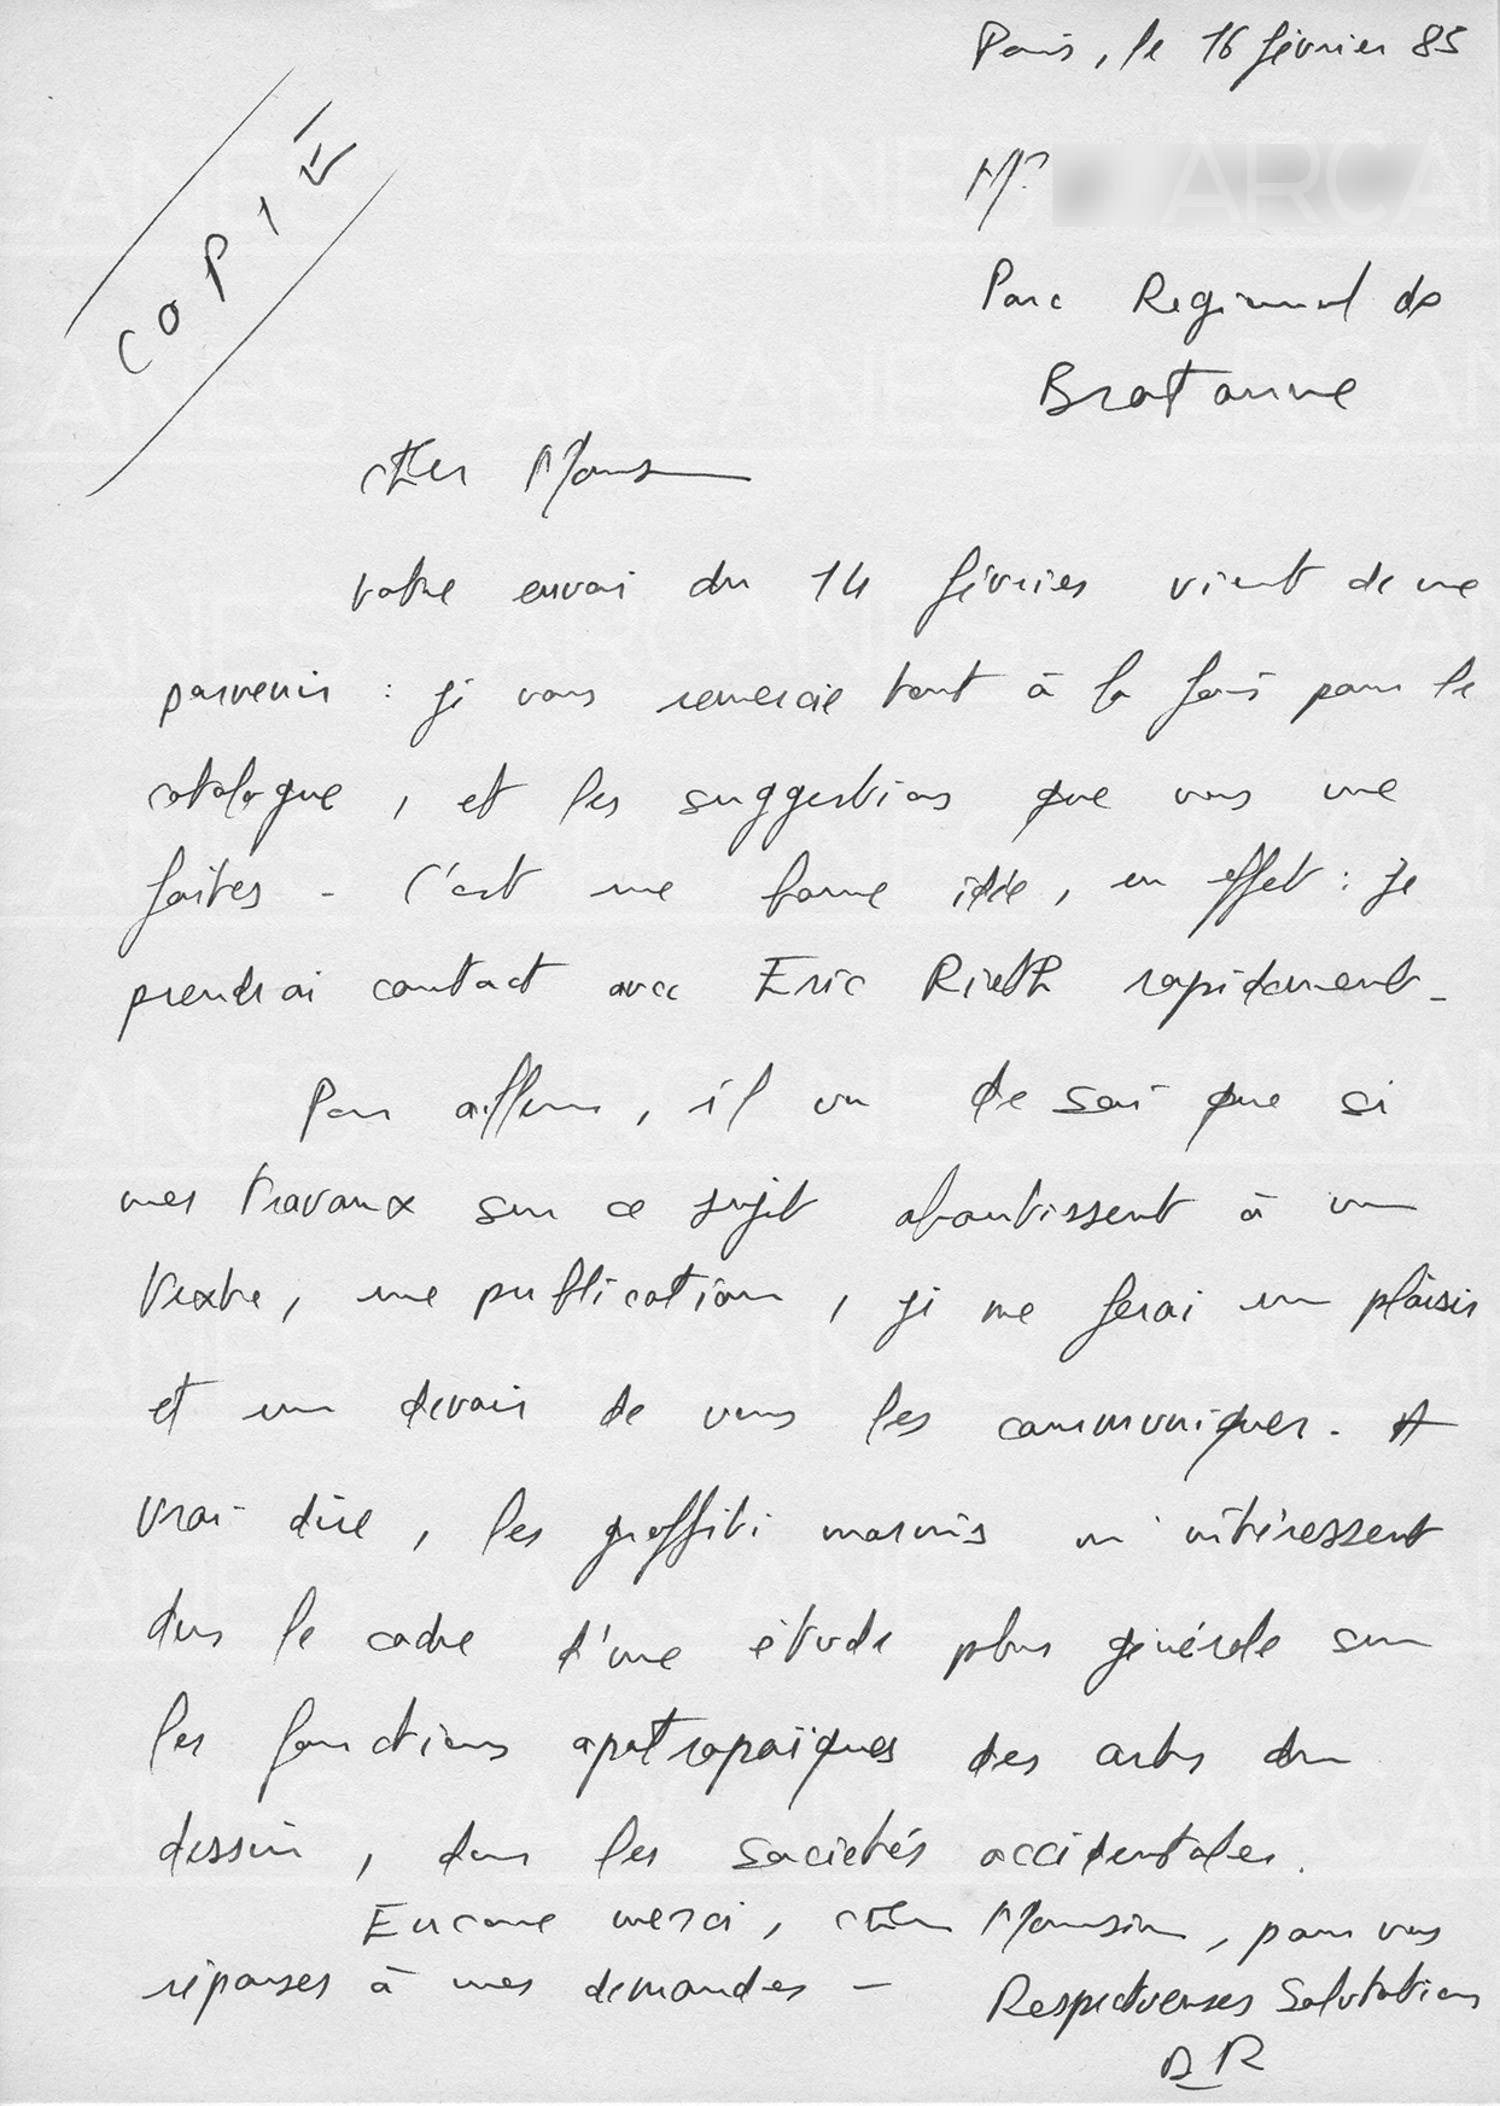 Paris, le 16 février 85
COPIE
Mr
Parc Régional de
Brotonne
Cher Monsieur
votre envoi du 14 février vient de me
parvenir : je vous remercie tout à la fois pour le
catalogue, et les suggestions que vous me
faites - C'est une bonne idée, en effet : je
prendrai contact avec Eric Rieth rapidement -
Par ailleurs, il va de soi que si
mes travaux sur ce sujet aboutissent à un
texte, une publication, je me ferai un plaisir
et un devoir de vous les communiquer. A
vrai dire, les graffiti marins m'intéressent
dans le cadre d'une étude plus générale sur
les fonctions apotropaïques des arts du
dessin, dans les sociétés occidentales.
Encore merci, cher Monsieur, pour vos
réponses à mes demandes -
Respectueuses Salutations
DR